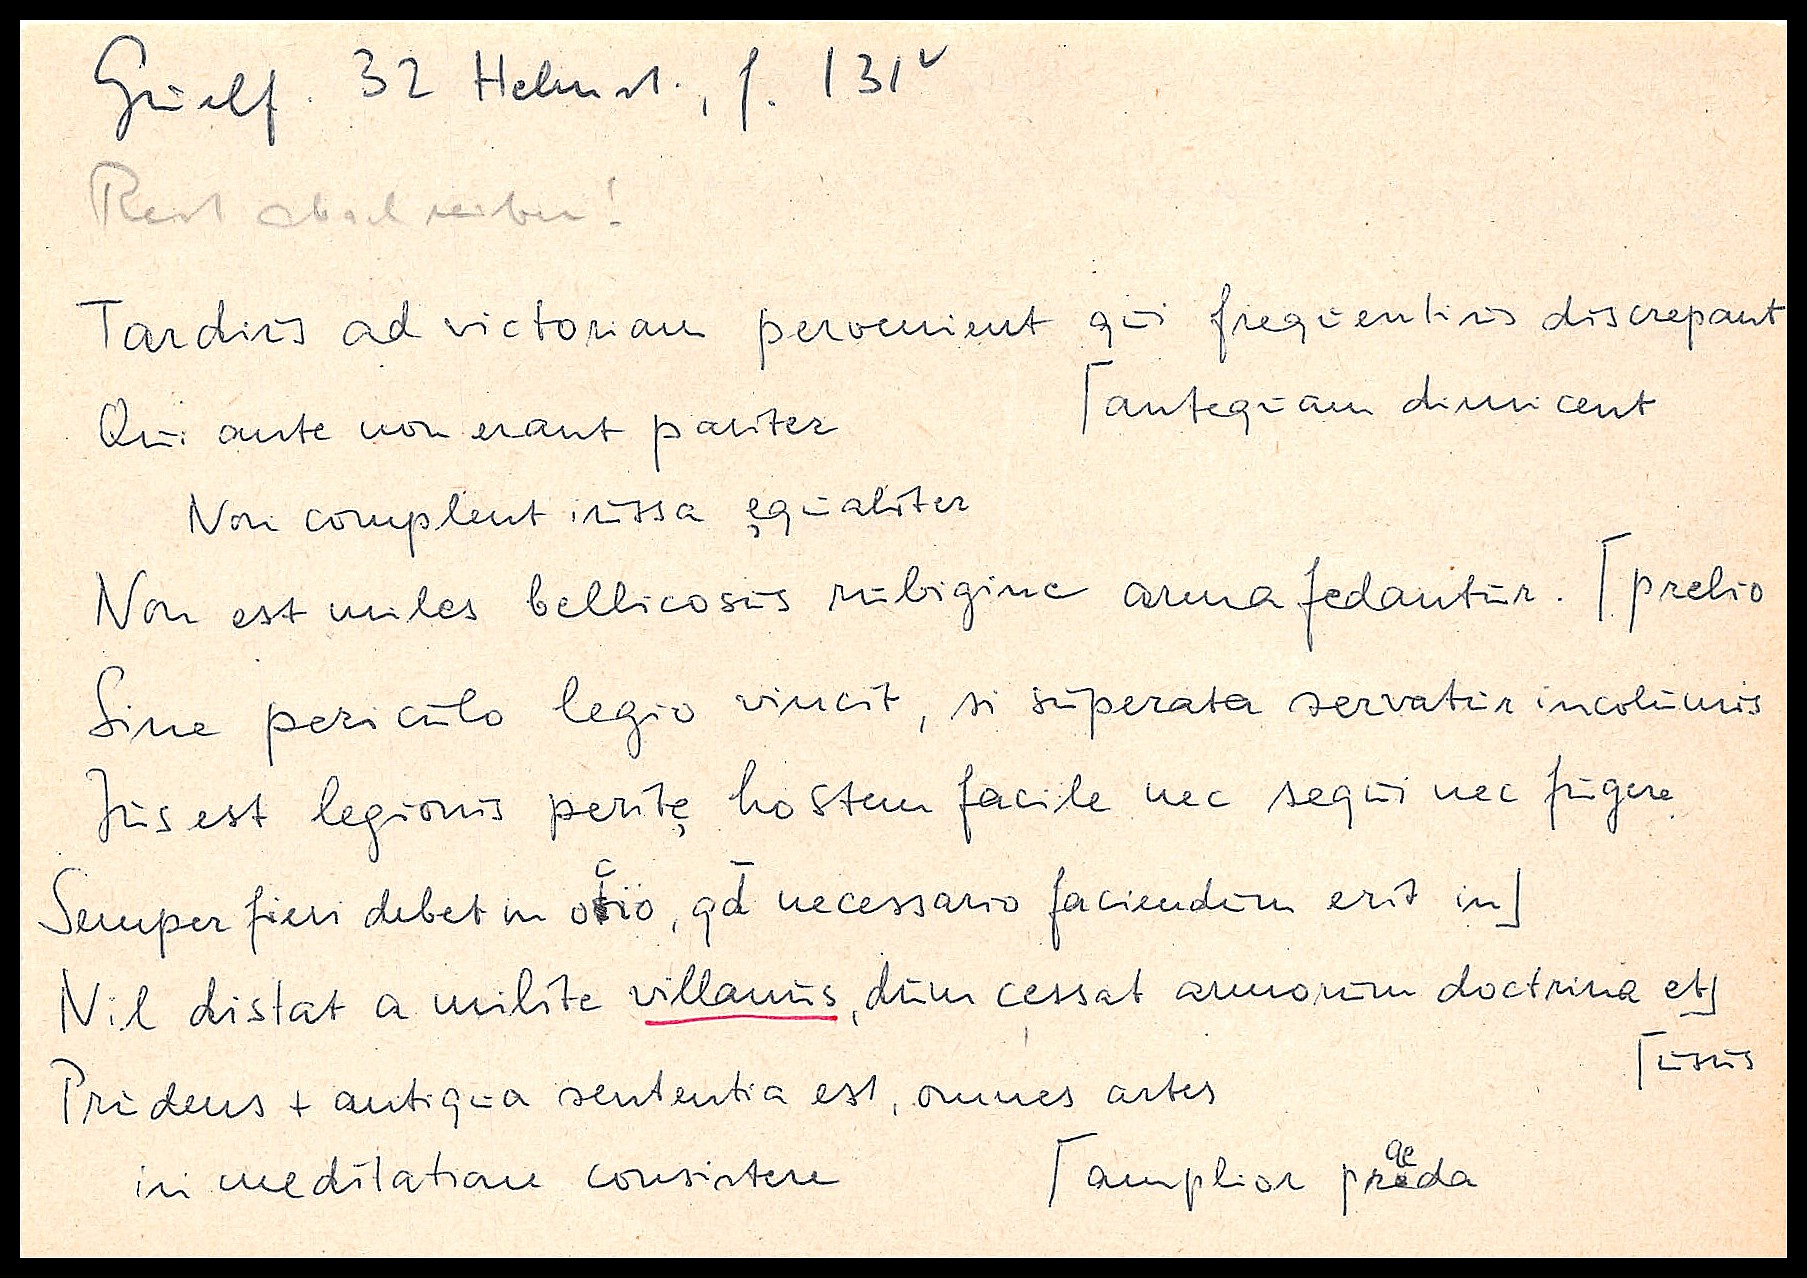 Guelf. 32 Helmst., f. 131v
Rest abschreiben!
Tardius ad victoriam pervenient qui frequentius discrepant
Qui ante non erant pariter ⌈antequam dimicent
Non complent iussa ęqualiter
Non est miles bellicosus rubigine arma fedantur. ⌈prelio
Sine periculo legio vincit, si superata servatur incolumis
Jus est legionis peritę hostem facile nec sequi nec fugere
Semper fieri debet in ocio, qd̄ necessario faciendum erit in⌋
Nil distat a milite villanus, dum cęssat armorum doctrina et⌋
⌈usus
Prudens + antiqua sententia est, omnes artes
in meditatione consistere ⌈amplior praeda